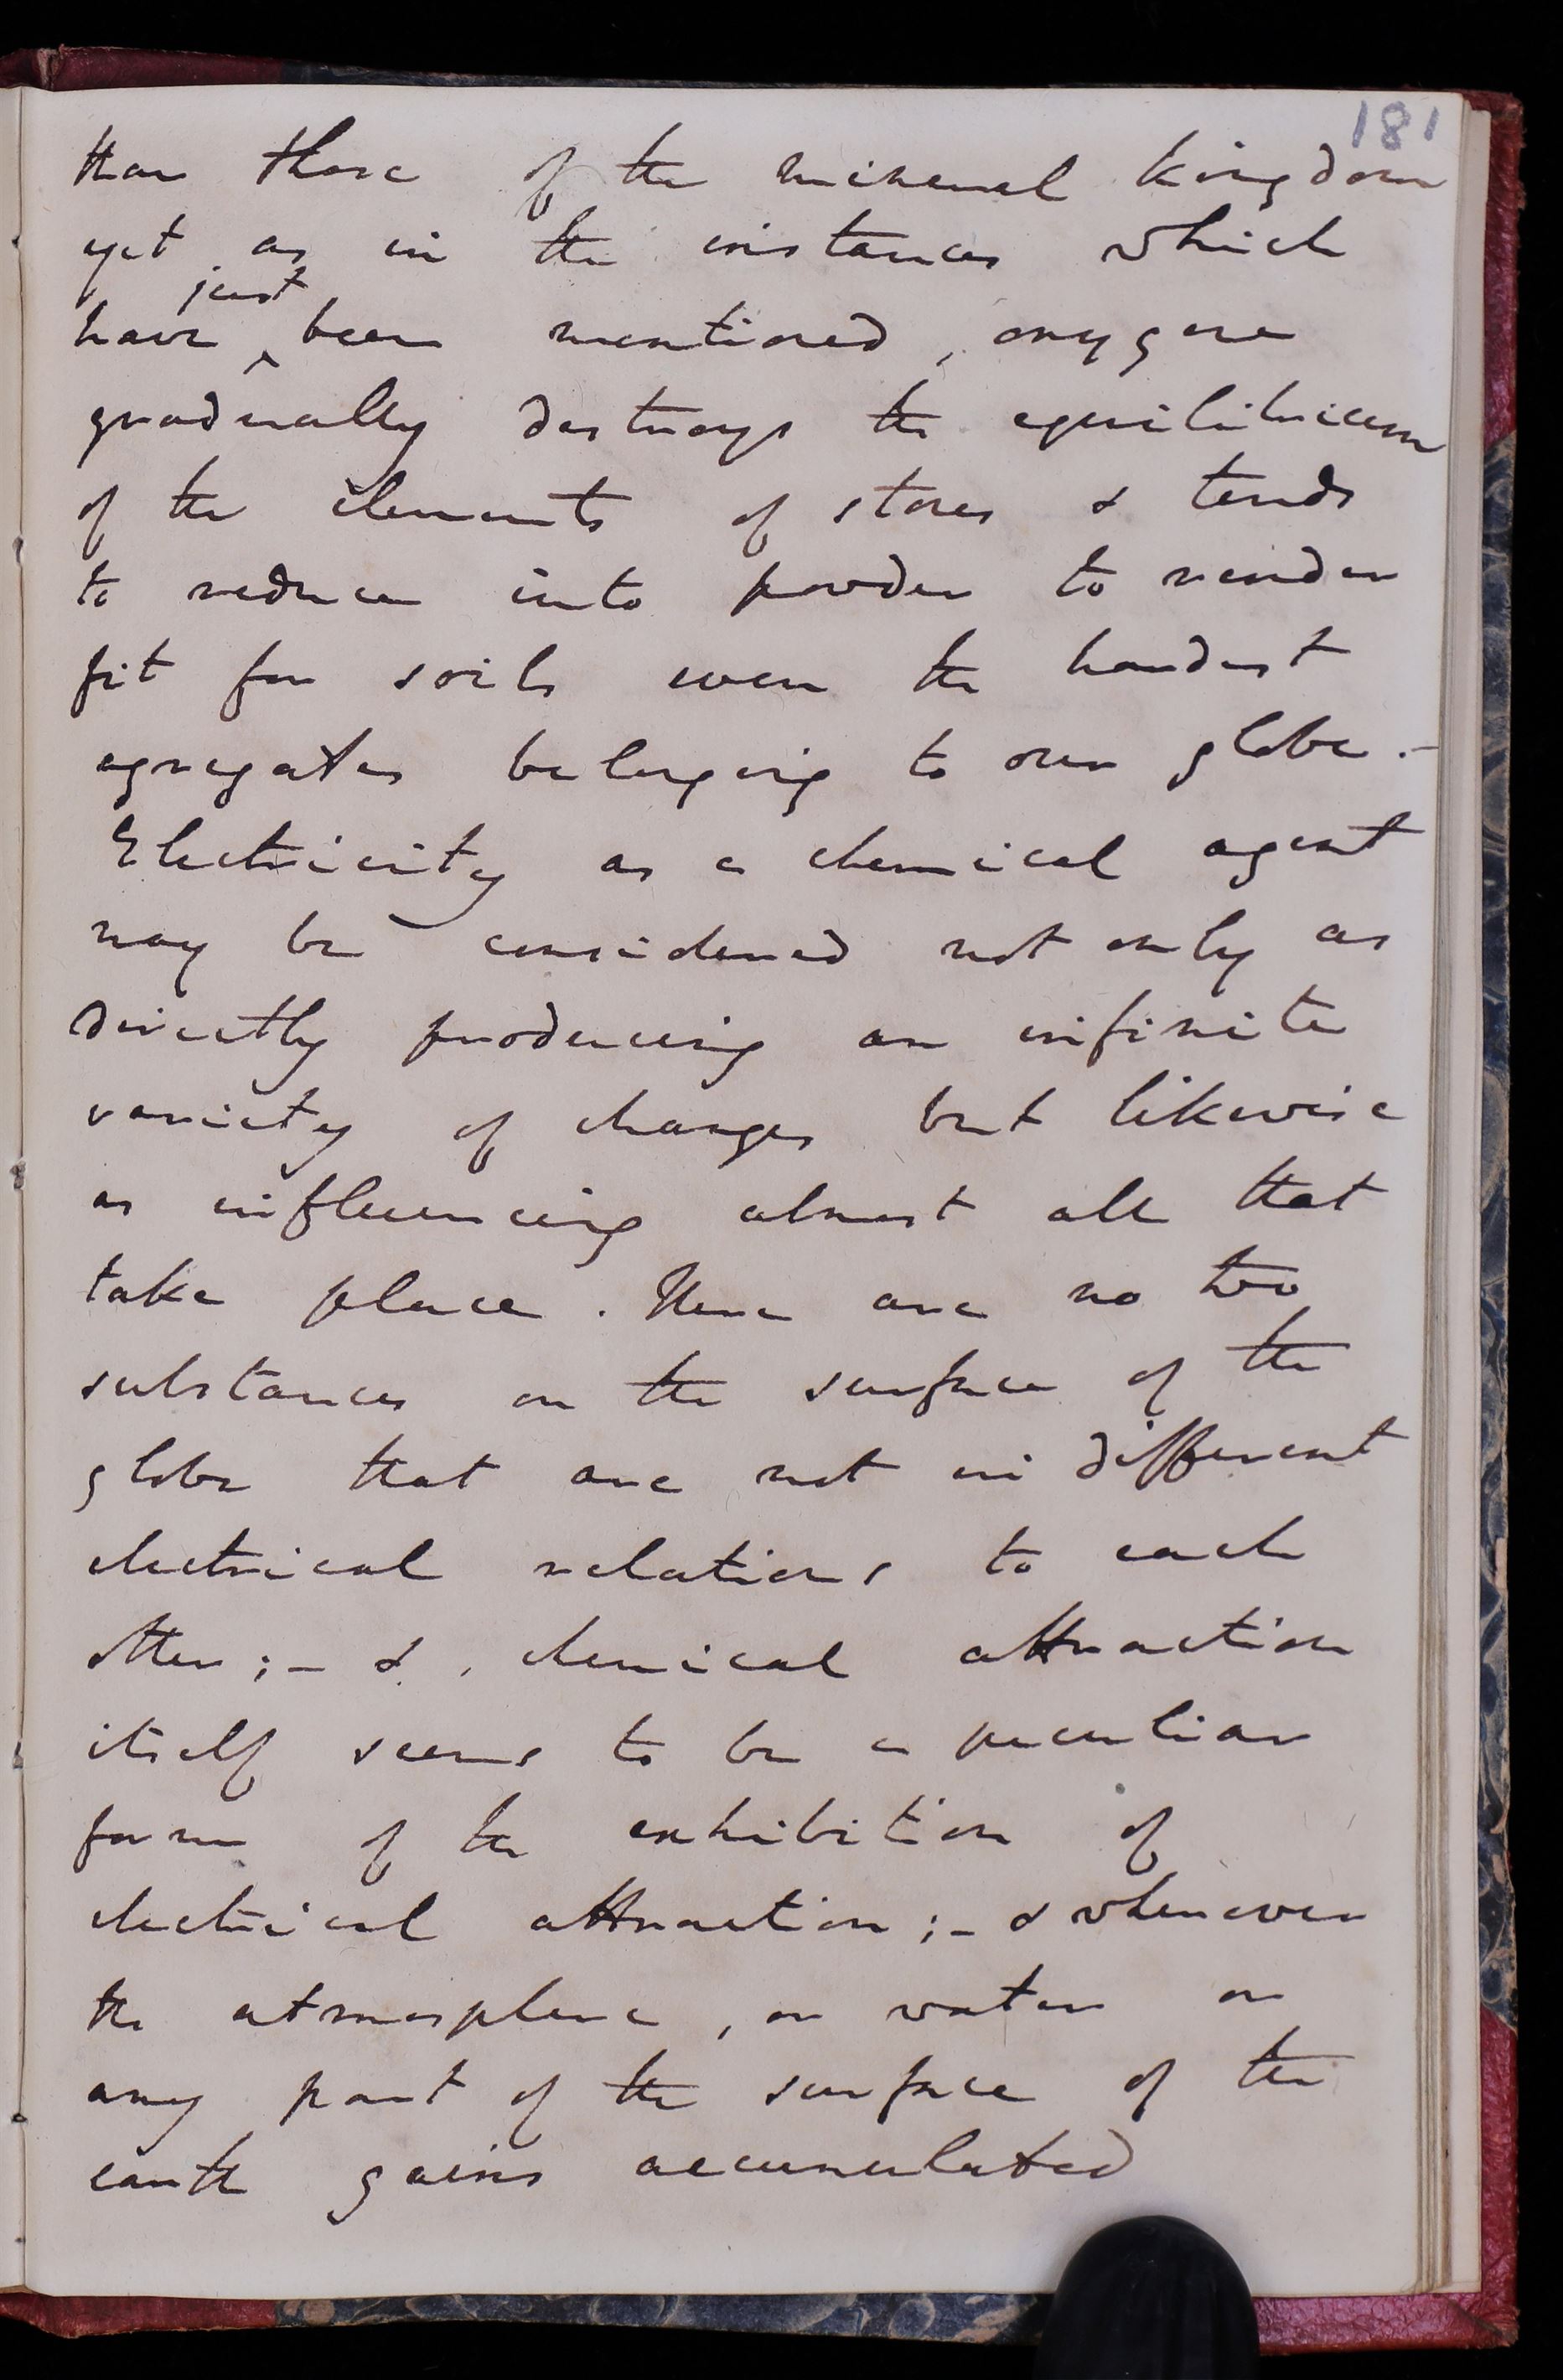 181
than those of the mineral kingdom
yet as in the instances which
just
have ^ been mentioned, oxygene
gradually destroys the equilibrium
of the elements of stones & tends
to reduce into powder to render
fit for soils even the hardest
agregates belonging to our globe. -
Electricity as a chemical agent
may be considered not only as
directly producing an infinite
variety of changes but likewise
as influencing almost all that
take place. There are no two
substances on the surface of the
globe that are not in different
electrical relations to each
other; - & chemical attraction
itself seems to be a peculiar
form of the exhibition of
electrical attraction; - & whenever
the atmosphere, or water or
any part of the surface of the
earth gains accumulated